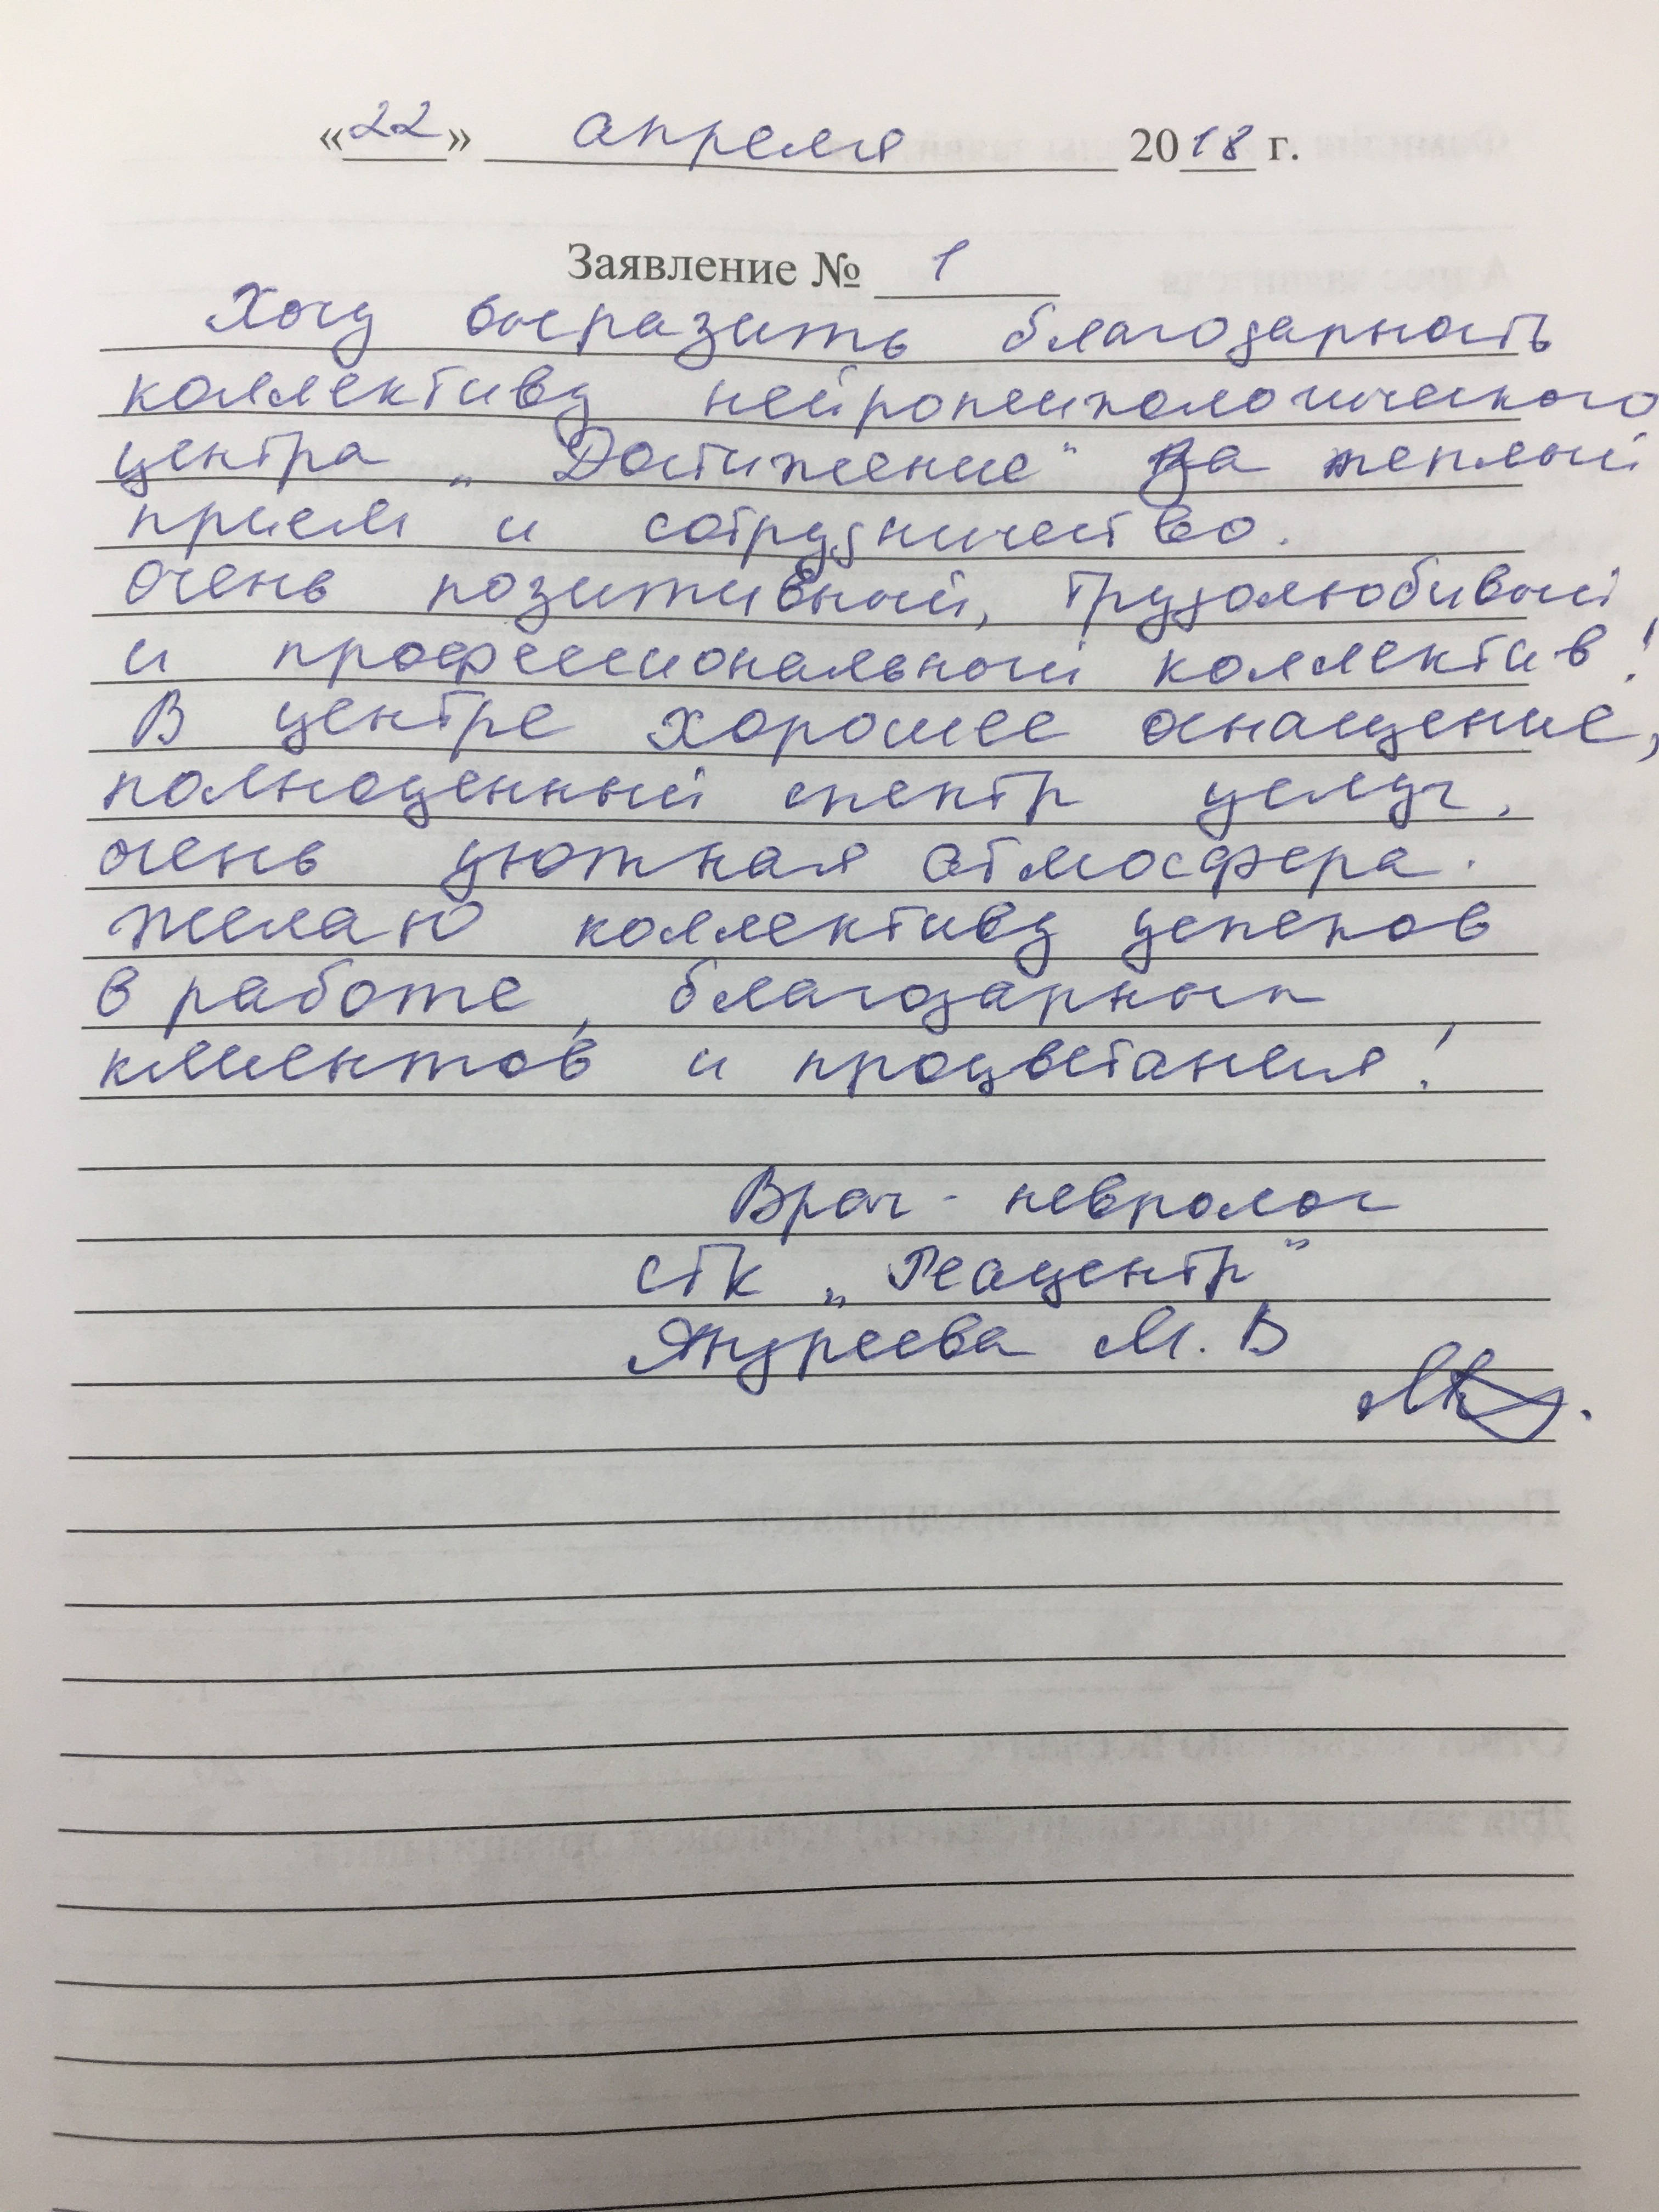 «22» апреля 2018 г.
Заявление № 1
Хочу выразить благодарность
коллективу нейропсихологического
центра „Достижение“ за теплый
прием и сотрудничество.
Очень позитивный, трудолюбивый
и профессиональный коллектив!
В центре хорошее оснащение,
полноценный спектр услуг,
очень уютная атмосфера.
Желаю коллективу успехов
в работе, благодарных
клиентов и процветания!
Врач - невролог
СТК „Реацентр”
Андреева М. В